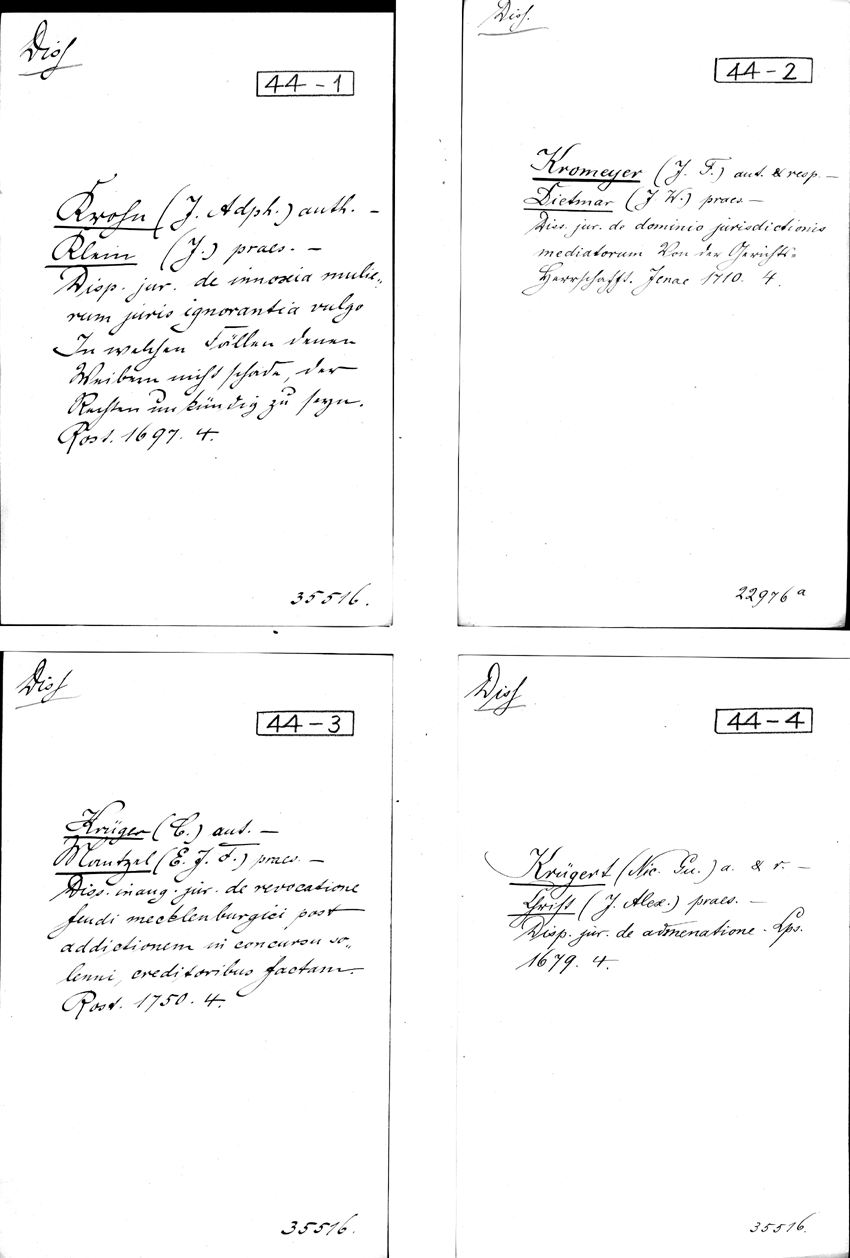 Diss
44-1
Krohn (J. Adph.) auth. –
Klein (J.) praes. –
Disp. jur. de innoxia mulie„
rum juris ignorantia vulgo
In welchen Fällen denen
Weibern nicht schade, der
Rechten unkündig zu seyn.
Rost. 1697. 4.
35516.
Diss.
44-2
Kromeyer (J. F.) aut. & resp. –
Dietmar (J W.) praes –
Diss. jur. de dominio jurisdictionis
mediatorum Von der Gerichts=
Herrschafft. Jenae 1710. 4.
22976a
Diss
44-3
Krüger (C.) aut. –
Mantzel (E. J. F.) praes. –
Diss. inaug. jur. de revocatione
feudi mecklenburgici post
addictionem in concursu so„
lenni, creditoribus factam.
Rost. 1750. 4.
35516.
Diss
44-4
Krügert (Nic. Gu.) a. & r. –
(J. Alex.) praes. –
Disp. jur. de Lps.
1679. 4.
35516.